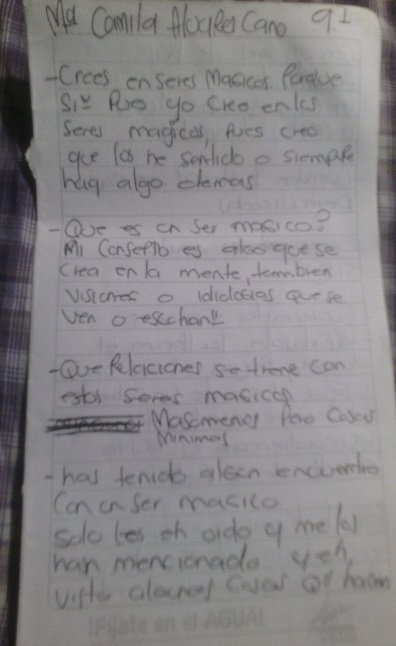 Ma Camila Alvarez Cano 9.1
-Crees en seres Magicos. Porque
Si= Pues yo creo en los
seres magicos, Pues creo
que los he sentido o siempre
hay algo demas
-Que es en ser magico?
Mi Consepto es algo que se
crea en la mente, tembien
visiones o idiologias que se
ven o escchan!!
-Que Relaciones se tiene con
estos seres magicos
Masomenos Pero Cosas
Minimas
-has tenido algun encuentro
Con un ser magico
solo les eh oido y me los
han mencionado y eh
visto algunas Cosas q' hacen
¡Fíjate en el AGUA!